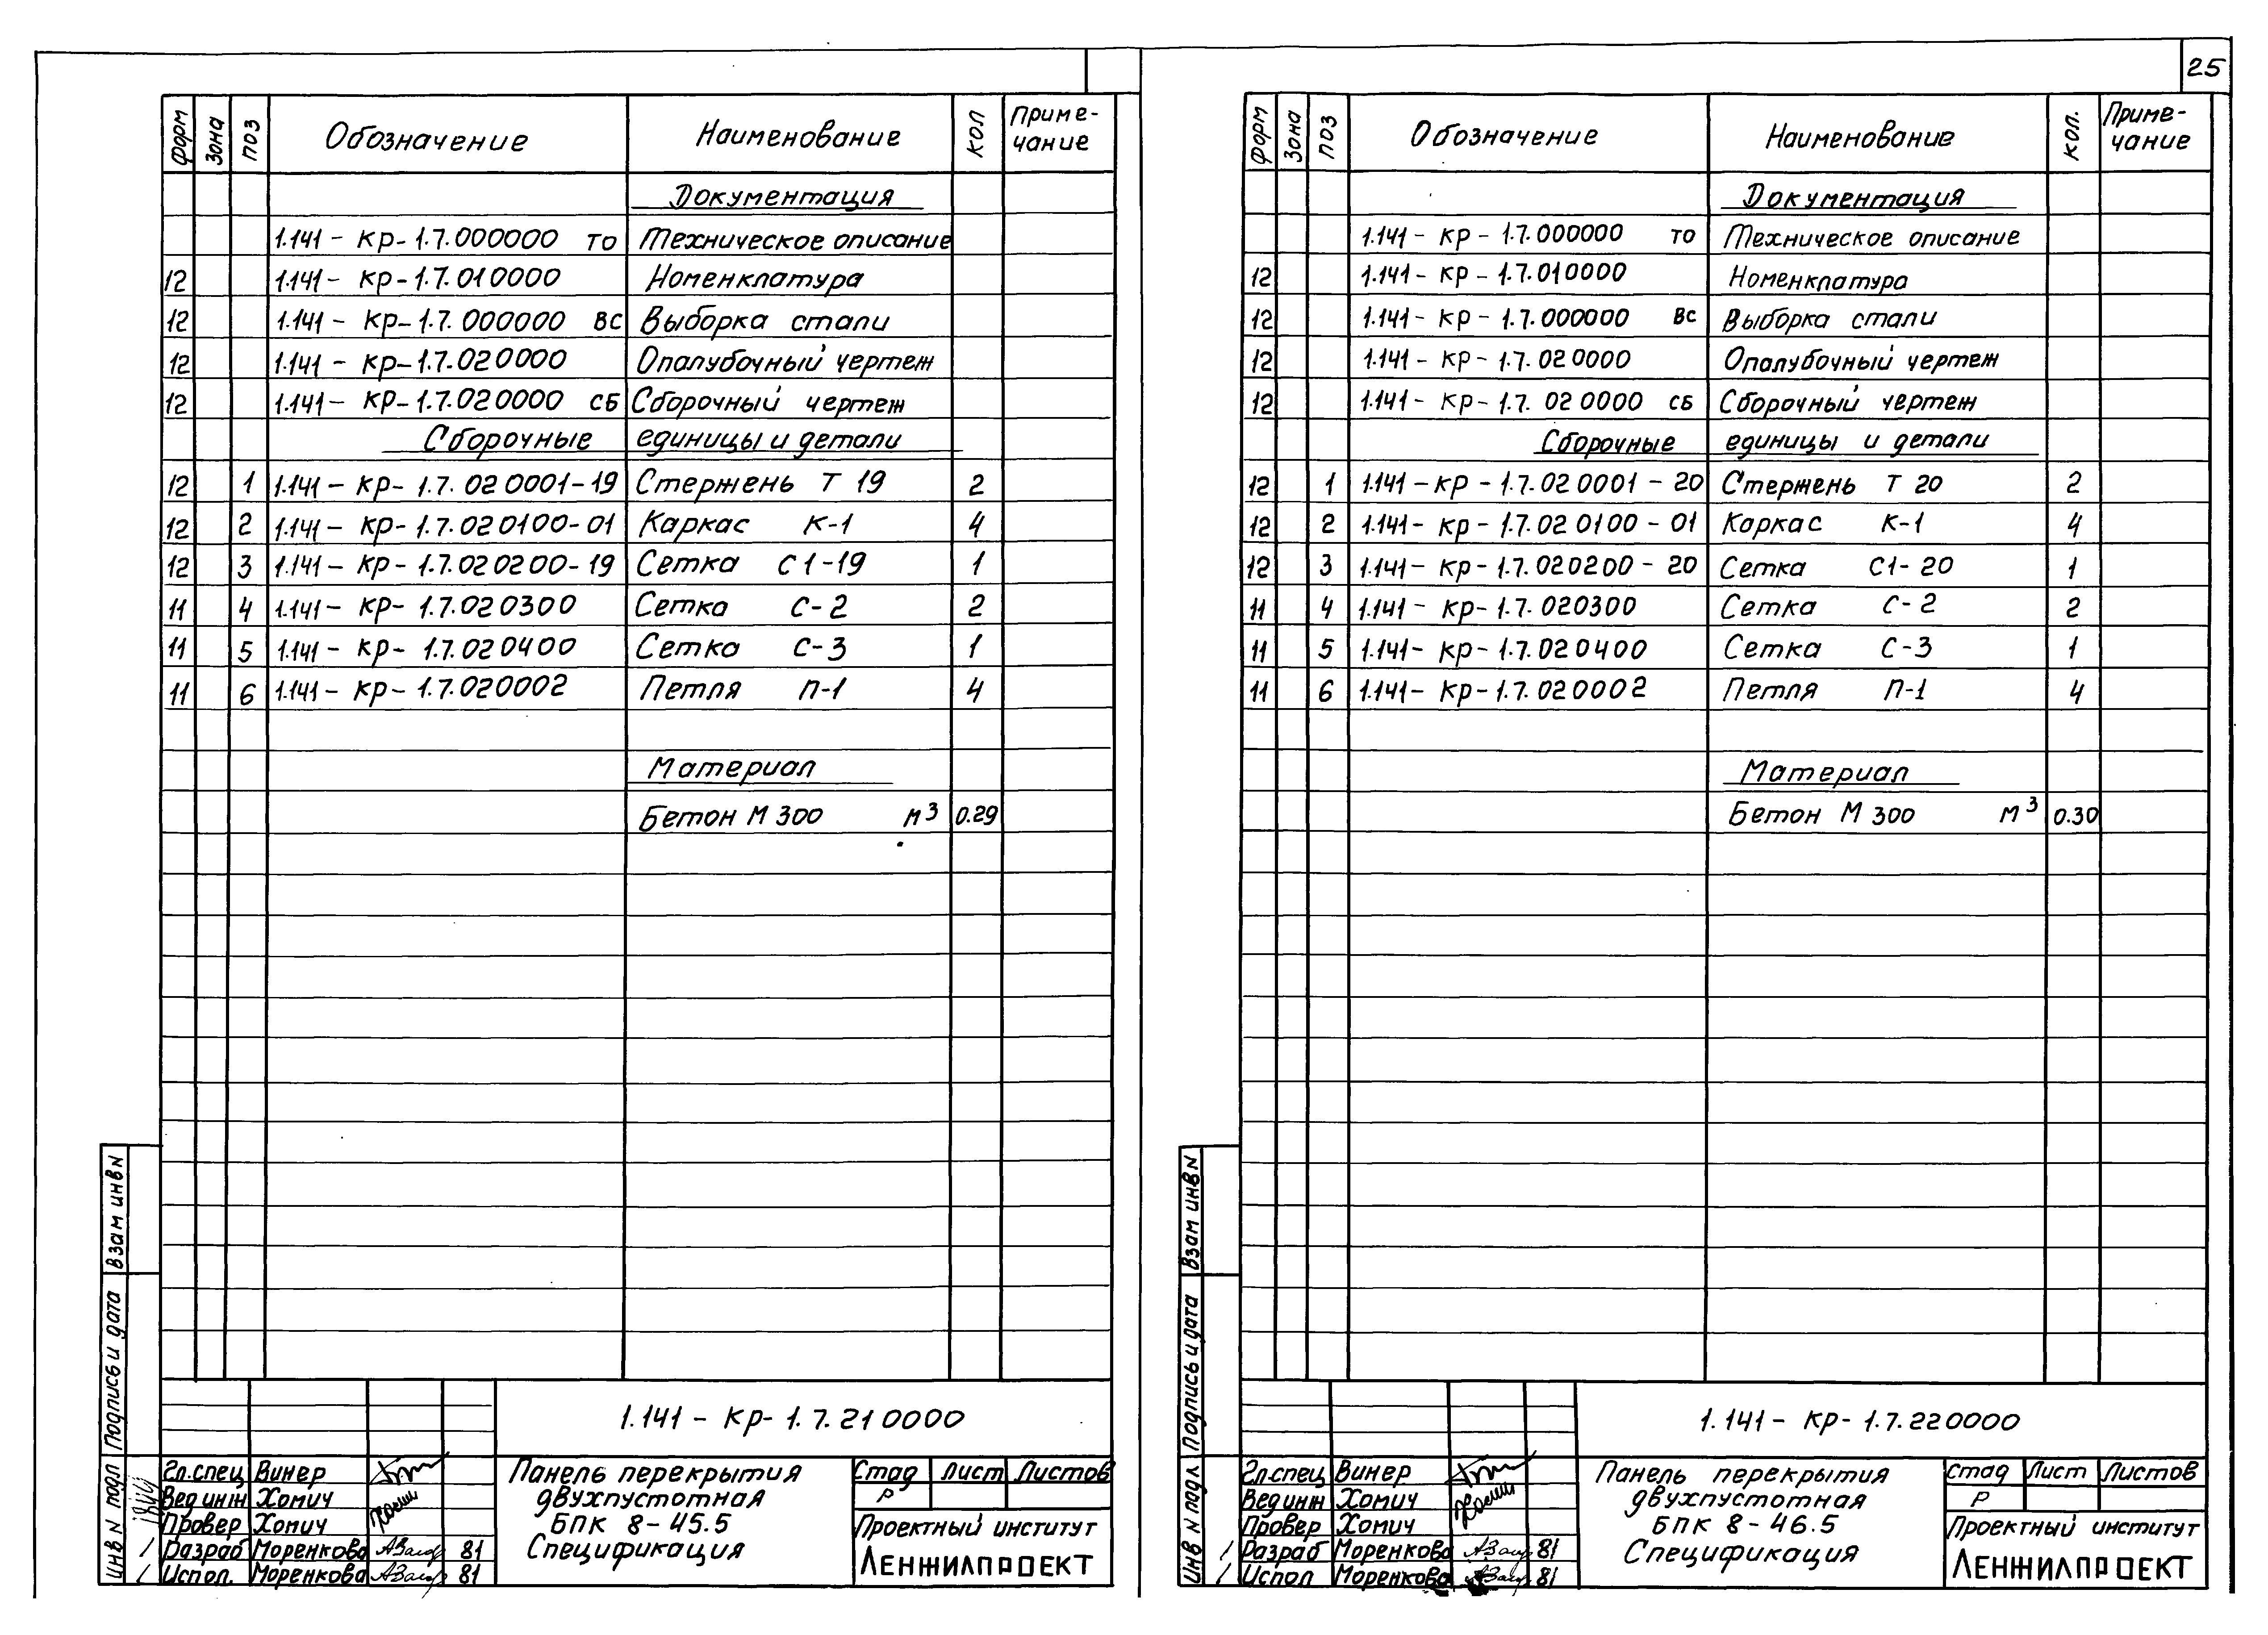 25
форм зона поз Обозначение Наименование кол Приме-
чание
Документация
1.141 - кр - 1.7.000000 ТО Техническое описание
12 1.141 - кр - 1.7.010000 Номенклатура
12 1.141 - кр - 1.7.000000 ВС Выборка стали
12 1.141 - кр - 1.7.020000 Опалубочный чертеж
12 1.141 - кр - 1.7.020000 СБ Сборочный чертеж
Сборочные единицы и детали
12 1 1.141 - кр - 1.7.020001-19 Стержень Т 19 2
12 2 1.141 - кр - 1.7.020100-01 Каркас К-1 4
12 3 1.141 - кр - 1.7.020200-19 Сетка С1-19 1
11 4 1.141 - кр - 1.7.020300 Сетка С-2 2
11 5 1.141 - кр - 1.7.020400 Сетка С-3 1
11 6 1.141 - кр - 1.7.020002 Петля П-1 4
Материал
Бетон М 300 м³ 0.29
Взам инв N
Подпись и дата
Инв N подл
1.141 - кр - 1.7.210000
Гл.спец Винер
Вед инж Хомич
Провер Хомич
Разраб Моренкова 81
Испол. Моренкова 81
Панель перекрытия
двухпустотная
БПК 8-45.5
Спецификация
Стад Лист Листов
Р
Проектный институт
ЛЕНЖИЛПРОЕКТ
форм зона поз Обозначение Наименование кол. Приме-
чание
Документация
1.141 - кр - 1.7.000000 ТО Техническое описание
12 1.141 - кр - 1.7.010000 Номенклатура
12 1.141 - кр - 1.7.000000 ВС Выборка стали
12 1.141 - кр - 1.7.020000 Опалубочный чертеж
12 1.141 - кр - 1.7.020000 СБ Сборочный чертеж
Сборочные единицы и детали
12 1 1.141 - кр - 1.7.020001-20 Стержень Т 20 2
12 2 1.141 - кр - 1.7.020100-01 Каркас К-1 4
12 3 1.141 - кр - 1.7.020200-20 Сетка С1-20 1
11 4 1.141 - кр - 1.7.020300 Сетка С-2 2
11 5 1.141 - кр - 1.7.020400 Сетка С-3 1
11 6 1.141 - кр - 1.7.020002 Петля П-1 4
Материал
Бетон М 300 м³ 0.30
Взам инв N
Подпись и дата
Инв N подл
1.141 - кр - 1.7.220000
Гл.спец Винер
Вед инж Хомич
Провер Хомич
Разраб Моренкова 81
Испол Моренкова 81
Панель перекрытия
двухпустотная
БПК 8-46.5
Спецификация
Стад Лист Листов
Р
Проектный институт
ЛЕНЖИЛПРОЕКТ